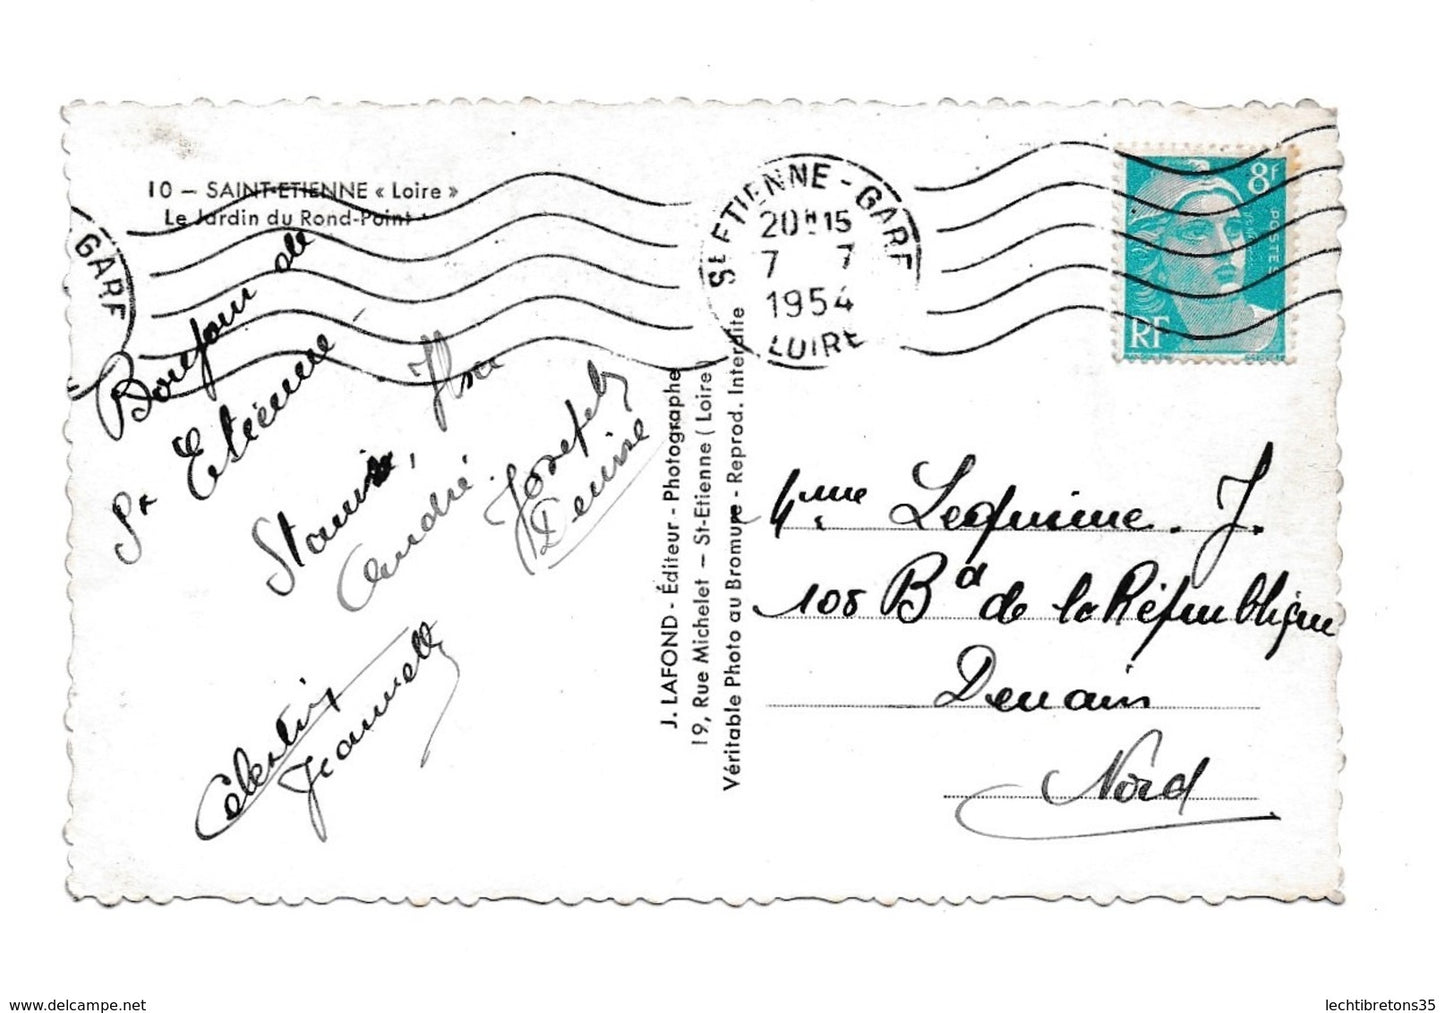 10 – SAINT-ETIENNE « Loire »
Le Jardin du Rond-Point
GARE
St ETIENNE - GARE
20H15
7 7
1954
LOIRE
8f
POSTES
RF
Bonjour de
St Etienne
Stanis,
André
Joseph
Denise
Célestin
Jeannette
J. LAFOND - Éditeur - Photographe
19, Rue Michelet – St-Etienne ( Loire )
Véritable Photo au Bromure - Reprod. Interdite
Lequime. J.
108 Bd de la République
Denain
Nord
www.delcampe.net
lechtibretons35